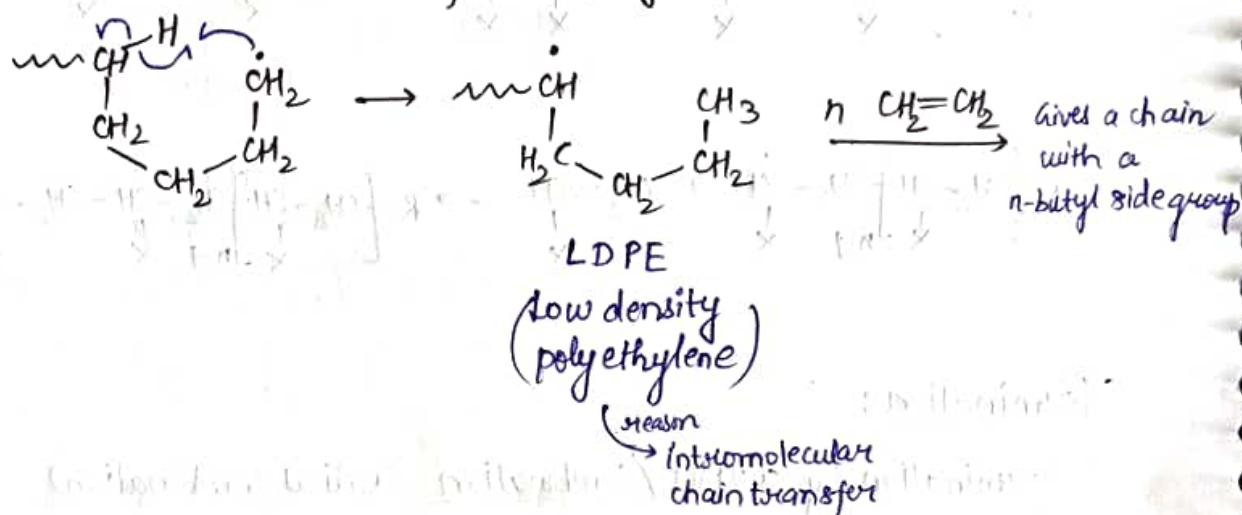 H
CH
ĊH₂
CH₂
CH₂
CH₂
ĊH
CH₃
H₂C
CH₂
CH₂
n CH₂=CH₂
Gives a chain
with a
n-butyl side group
LDPE
(Low density
polyethylene)
reason
intromolecular
chain transfer